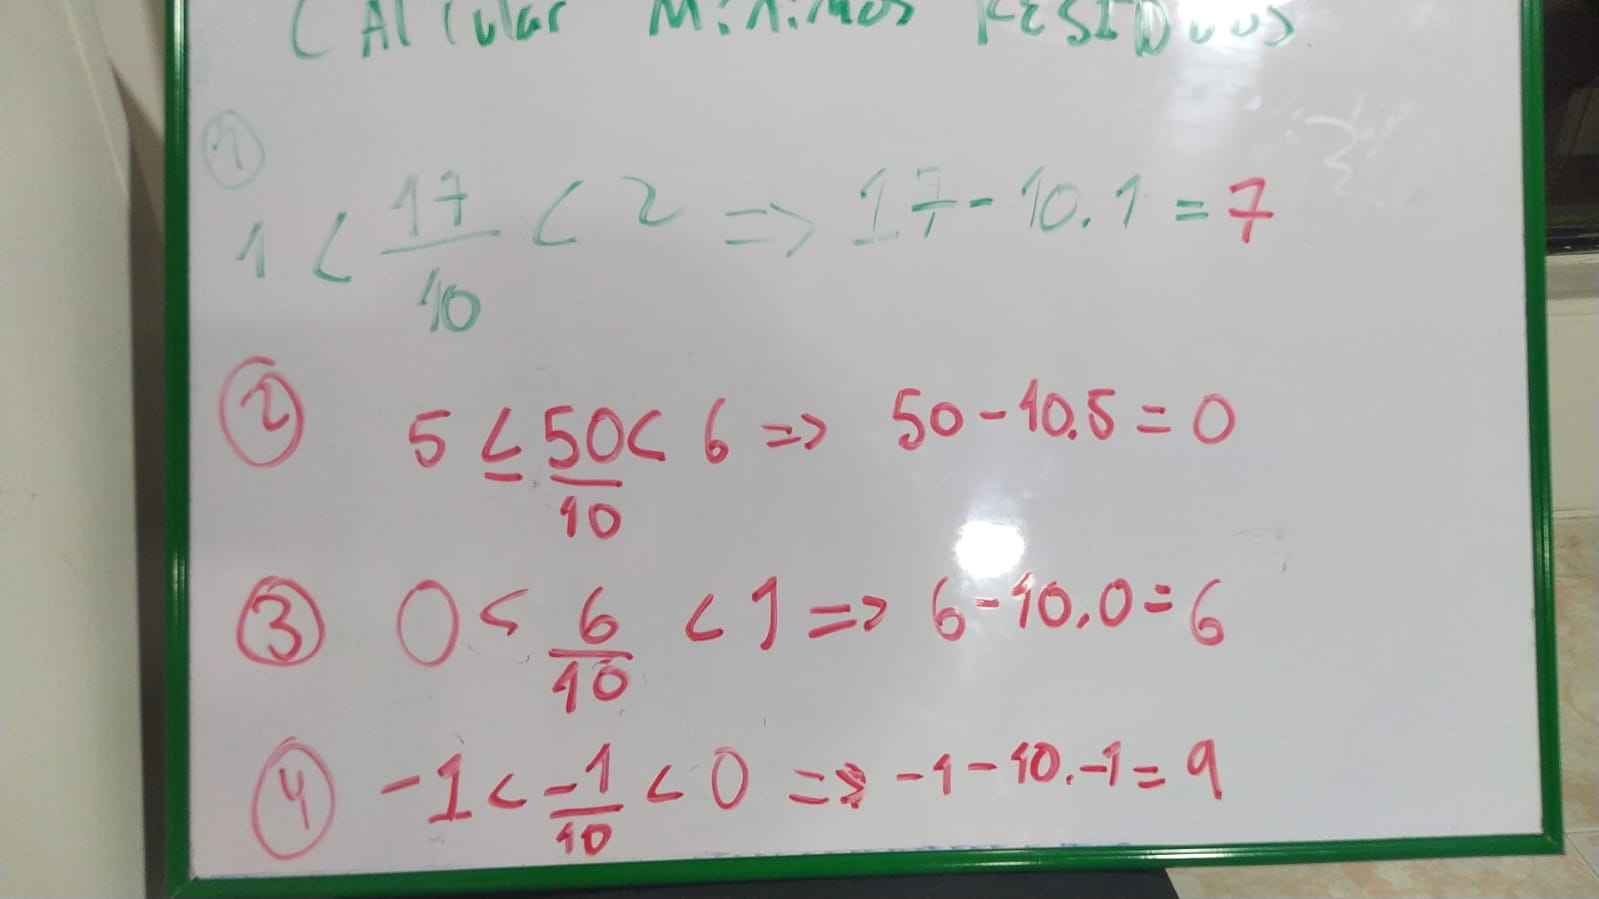 CALCULAR MiNiMOS RESIDUOS
①
1 < 17/10 < 2 => 17 - 10.1 = 7
② 5 ≤ 50/10 < 6 => 50 - 10.5 = 0
③ 0 < 6/10 < 1 => 6 - 10.0 = 6
④ -1 < -1/10 < 0 => -1 - 10.-1 = 9